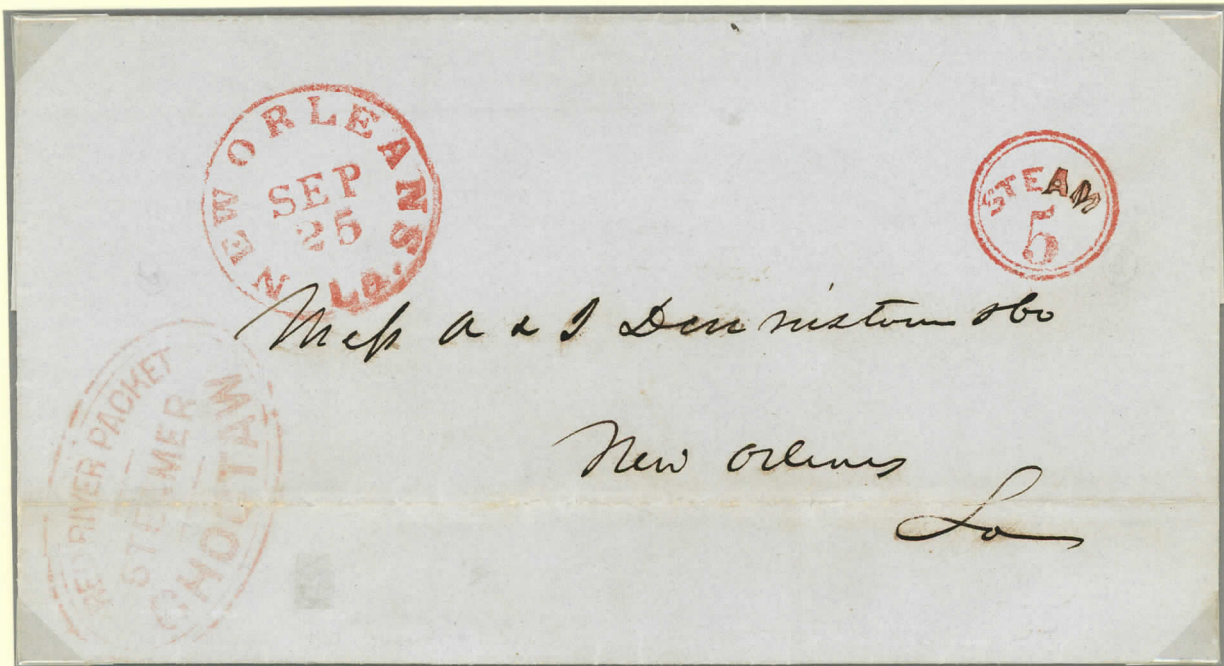 NEW ORLEANS LA.
SEP
25
STEAM
5
Mess A & J Dennistoun & Co
New Orleans
La
RED RIVER PACKET
STEAMER
CHOCTAW